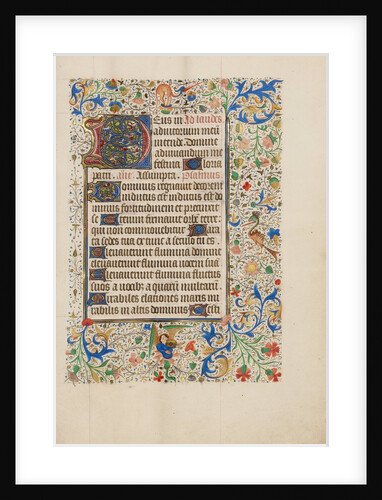 Deus in Ad laudes
adiutorium meu
intende. Domine
ad iuuandum me
festina Gloria
patri. an̄. Assumpta. Psalmus.
Dominus regnauit decorem
indutus est indutus est do
minus fortitudinem et precinxit
se Etenim firmauit orbē terre
qui non commouebitur Para
ta sedes tua ex tunc a seculo tu es.
Eleuauerunt flumina domine
eleuauerunt flumina uocem suā
Eleuauerunt flumina fluctus
suos a uocib; aquarū multarū.
Mirabiles elationes maris mi
rabilis in altis dominus Testi